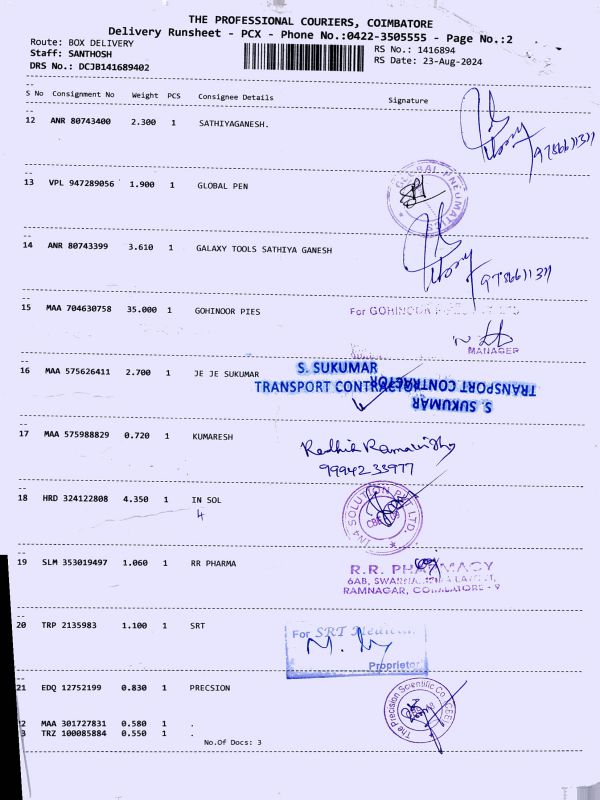 THE PROFESSIONAL COURIERS, COIMBATORE
Delivery Runsheet - PCX - Phone No.:0422-3505555 - Page No.:2
Route: BOX DELIVERY
RS No.: 1416894
Staff: SANTHOSH
RS Date: 23-Aug-2024
DRS No.: DCJB141689402
S No Consignment No Weight PCS Consignee Details Signature
12 ANR 80743400 2.300 1 SATHIYAGANESH.
13 VPL 947289056 1.900 1 GLOBAL PEN
GLOBAL PNEUMATICS
14 ANR 80743399 3.610 1 GALAXY TOOLS SATHIYA GANESH
15 MAA 704630758 35.000 1 GOHINOOR PIES
For GOHINOOR
MANAGER
16 MAA 575626411 2.700 1 JE JE SUKUMAR
S. SUKUMAR
TRANSPORT CONTRACTOR
TRANSPORT CONTRACTOR
S. SUKUMAR
17 MAA 575988829 0.720 1 KUMARESH
99942 33977
18 HRD 324122808 4.350 1 IN SOL
4
IN4 SOLUTION PVT LTD.
19 SLM 353019497 1.060 1 RR PHARMA
R.R. PHARMACY
6AB,
RAMNAGAR, COIMBATORE - 9
20 TRP 2135983 1.100 1 SRT
For SRT Medical
Proprietor
21 EDQ 12752199 0.830 1 PRECSION
The Precision Scientific Co.
2 MAA 301727831 0.580 1 .
3 TRZ 100085884 0.550 1 .
No.Of Docs: 3